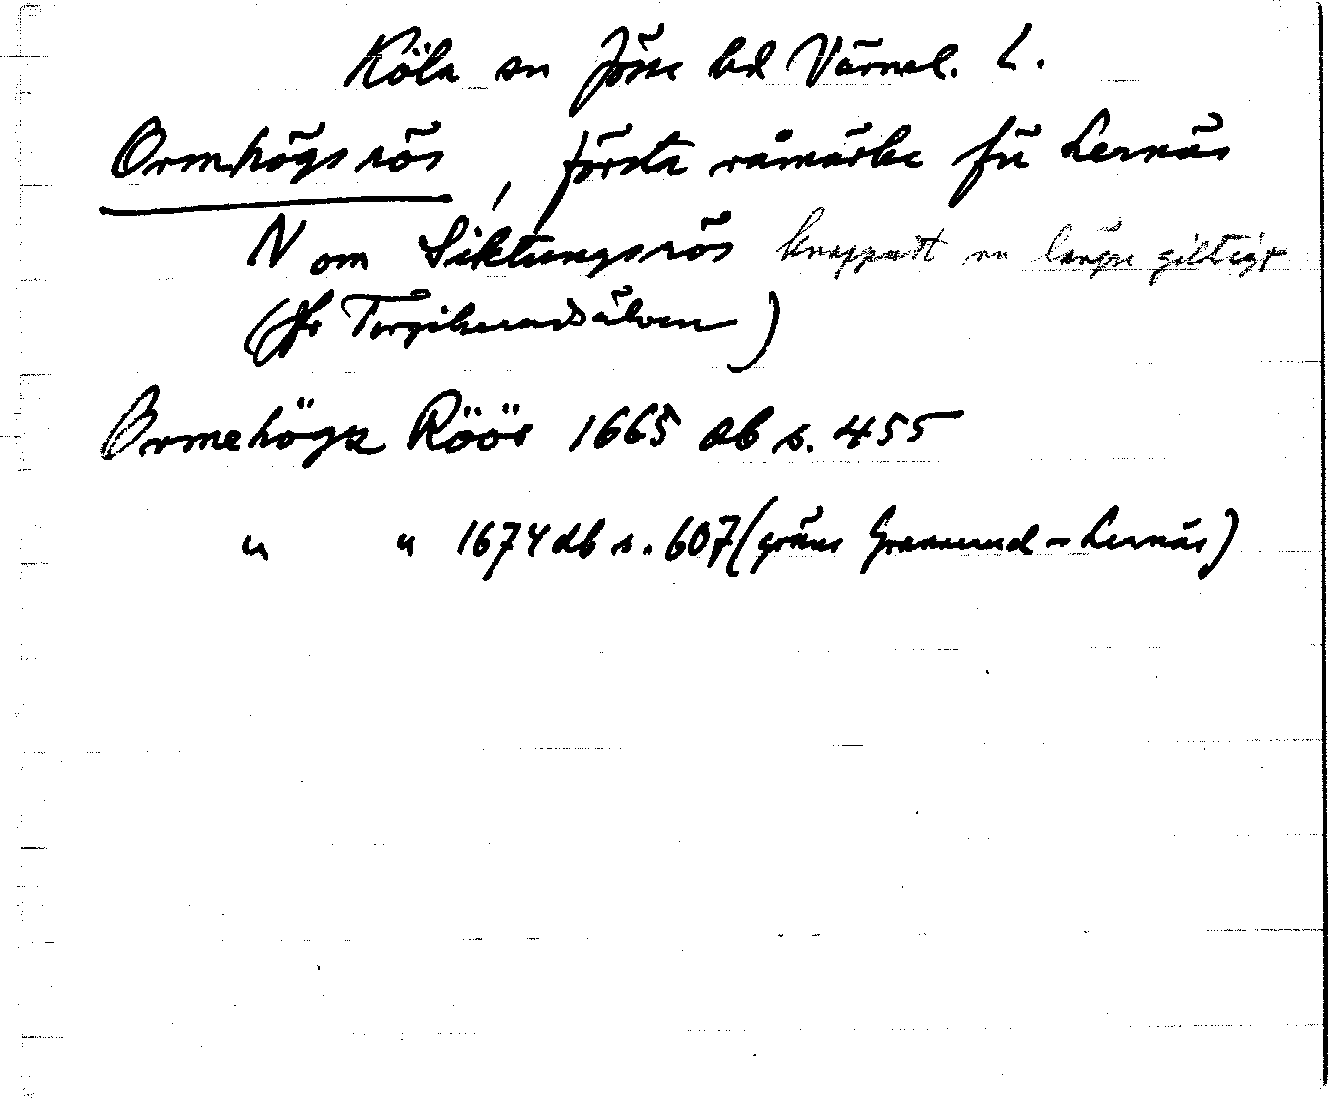 Köla sn Jösse hd Värml. L.
Ormhögsrös, första råmärke för Lernäs
N om Siktungsrös knappast nu längre giltigt
(fr älven)
Ormehögz Röös 1665 db s. 455
" " 1674 db s. 607 (gräns Grannerud - Lernäs)